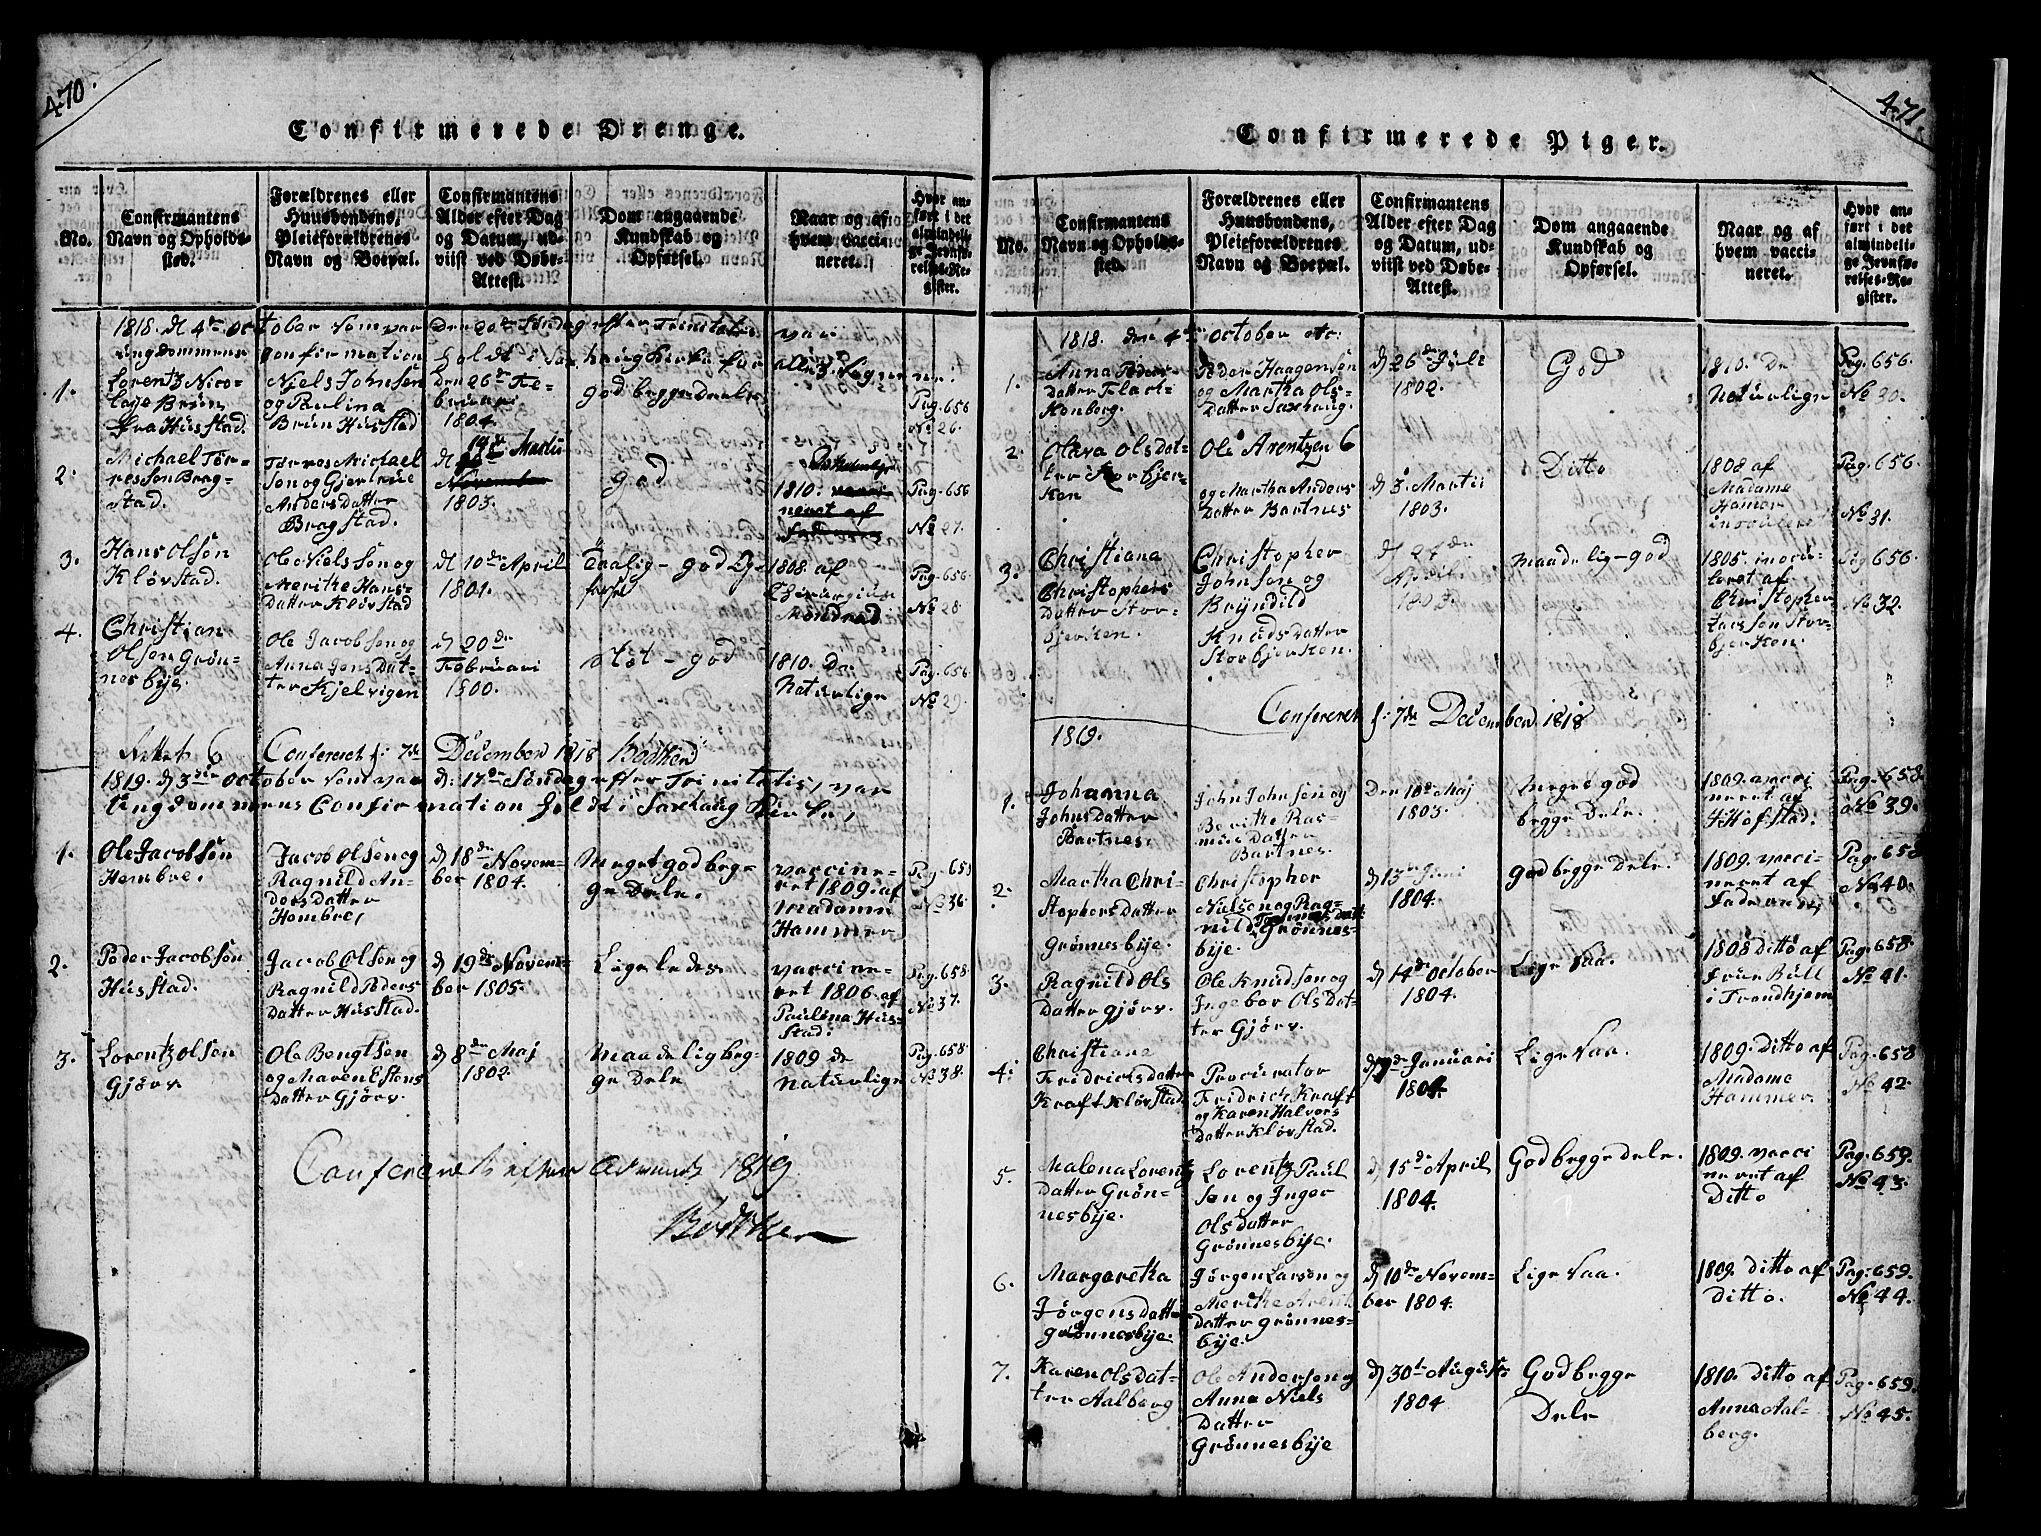 470.
Confirmerede Drenge.
No.
Confirmantens
Navn og Opholds-
sted.
Forældrenes eller
Huusbondens,
Pleieforældrenes
Navn og Boepæl.
Confirmantens
Alder efter Dag
og Datum, ud-
viist ved Døbe-
Attest.
Dom angaaende
Kundskab og
Opførsel.
Naar og af
hvem vacci-
neret.
Hvor an-
ført i det
almindeli-
ge Jevnfø-
relses-Re-
gister.
1818. d 4de October som var Den 20de Søndag efter Trinitatis var
ungdommens Confirmation holdt i Saxhaug Kirke for alle 3 Sogner
1.
Lorentz Nico-
laje Brün
fra Husstad.
Niels Johnsen
og Paulina
Brün Husstad
Den 26de Fe-
bruari
1804.
god begge Deele
Pag. 656
No 26.
2.
Michael Tør-
resen Brag-
stad.
Tørres Michael
Sen og Gjertrue
Anders datter
Bragstad.
d 14de Martii
November
1803.
God
1810.
neret af
Pag. 656
No 27.
3.
Hans Olsen
Kløvstad.
Ole Nielsen og
Merithe Hans-
Datter Kløvstad
d 10de April
1801.
Taalig - god Op-
førsel
1808. af
Chirurgius
Mondrad
Pag. 656.
No 28.
4.
Christian
Olsen Grøn-
nesbye.
Ole Jacobsen og
Anna Jens Dat-
ter Kjelvigen
d 20de
Februari
1800.
Slet - god
1810. De
Naturlige
Pag. 656.
No 29.
Conferert d: 7de December 1818 Bødtker
1819. d 3die October som var d: 17de Søndag efter Trinitatis, var
Ungdommens Confirmation holdt i Saxhaug Kirke,
1.
Ole Jacobsen
Hembre.
Jacob Olsen og
Ragnild An-
ders datter
Hembre,
d 18de Novem-
ber 1804.
Meget god beg-
ge Dele.
vaccine-
ret 1809. af
Madame
Hammer
Pag. 658
No 36.
2.
Peder Jacobsen
Husstad.
Jacob Olsen og
Ragnild Peders
Datter Husstad.
d 19de Novem-
ber 1805.
Ligeledes
vaccine-
ret 1806. af
Paulina Hus-
stad.
Pag. 658.
No 37.
3.
Lorentz Olsen
Gjørv
Ole Bengtsen
og Maren Estens
Datter Gjørv.
d 8de Maj
1802.
Maadelig beg-
ge Dele
1809 de
naturlige
Pag. 658.
No 38.
1819.
Bødtker
471.
Confirmerede Piger.
No.
Confirmantens
Navn og Opholds-
sted.
Forældrenes eller
Huusbondens,
Pleieforældrenes
Navn og Boepæl.
Confirmantens
Alder efter Dag
og Datum, ud-
viist ved Døbe-
Attest.
Dom angaaende
Kundskab og
Opførsel.
Naar og af
hvem vacci-
neret.
Hvor an-
ført i det
almindeli-
ge Jevnfø-
relses-Re-
gister.
1818. den 4de October etc:
1.
Anna Peders-
datter Flack-
Konberg.
Peder Haagensen
og Martha Ols-
Datter Saxhaug.
d 26de Juli
1802.
God
1810. De
Naturlige
Pag. 656.
No 30.
2.
Olava Ols dat-
ter Storbjer-
ken
Ole Arentzen
og Martha Anders
Datter Bartnes
d 3. Martii
1803.
Ditto
1808 af
Madame
Hamer
Pag. 656.
No 31.
3.
Christiana
Christophers
Datter Stor-
bjerken.
Christopher
Johnsen og
Bryndild
Knuds datter
Storbjerken.
d 27de
April.
1803.
maadelig - god
1805. inocu-
leret af
Christopher
Larssen Stor-
bjerken.
Pag. 656
No 32.
Confereret d: 7de December 1818
1819.
1.
Johanna
Johns Datter
Bartnes.
John Johnsen og
Berithe Ras-
mus Datter
Bartnes.
Den 10de Maj
1803.
meget god
begge Dele.
1809. vacci
neret af
J. Hofstad.
Pag. 658
No 39.
2.
Martha Chri-
stophers Datter
Grønnesbye.
Christopher
Nielsen og Rag-
nild Grønnes-
bye.
d 13de Juni
1804.
God begge Dele.
1809. vacci-
neret af
Faderen,
Pag. 658
No 40.
3.
Ragnild Ols
Datter Gjørv.
Ole Knudsen og
Ingebor Ols Dat-
ter Gjørv.
d 14de October
1804.
Lige saa.
1808 ditto af
Frue Bull
i Trondhjem
Pag. 658.
No 41.
4.
Christiane
Fridrichs datter
Kraft Kløvstad
Procurator
Fridrich Kraft
og Karen Halvors
Datter Kløvstad.
Januari
1804.
Lige saa.
1809. ditto af
Madame
Hammer.
Pag. 658
No 42.
5.
Malena Lorentz
Datter Grøn-
nesbye.
Lorentz Paul
Sen og Inger
Ols datter
Grønnesbye.
d 15de April
1804.
God begge Dele.
1809. vacci
neret af
Ditto
Pag. 659.
No 43.
6.
Margaretha
Jørgens Datter
Grønnesbye.
Jørgen Larsen og
Merithe Arent
Datter Grønnes-
bye.
d 10de Novem-
ber 1804.
Lige saa.
1809. ditto af
ditto.
Pag. 659.
No 44.
7.
Karen Ols dat-
ter Aalberg
Ole Andersen og
Anna Niels
Datter
Grønnesbye
d 30te August
1804
God begge
Dele
1810. ditto af
Anna Aal-
berg.
Pag. 659.
No 45.